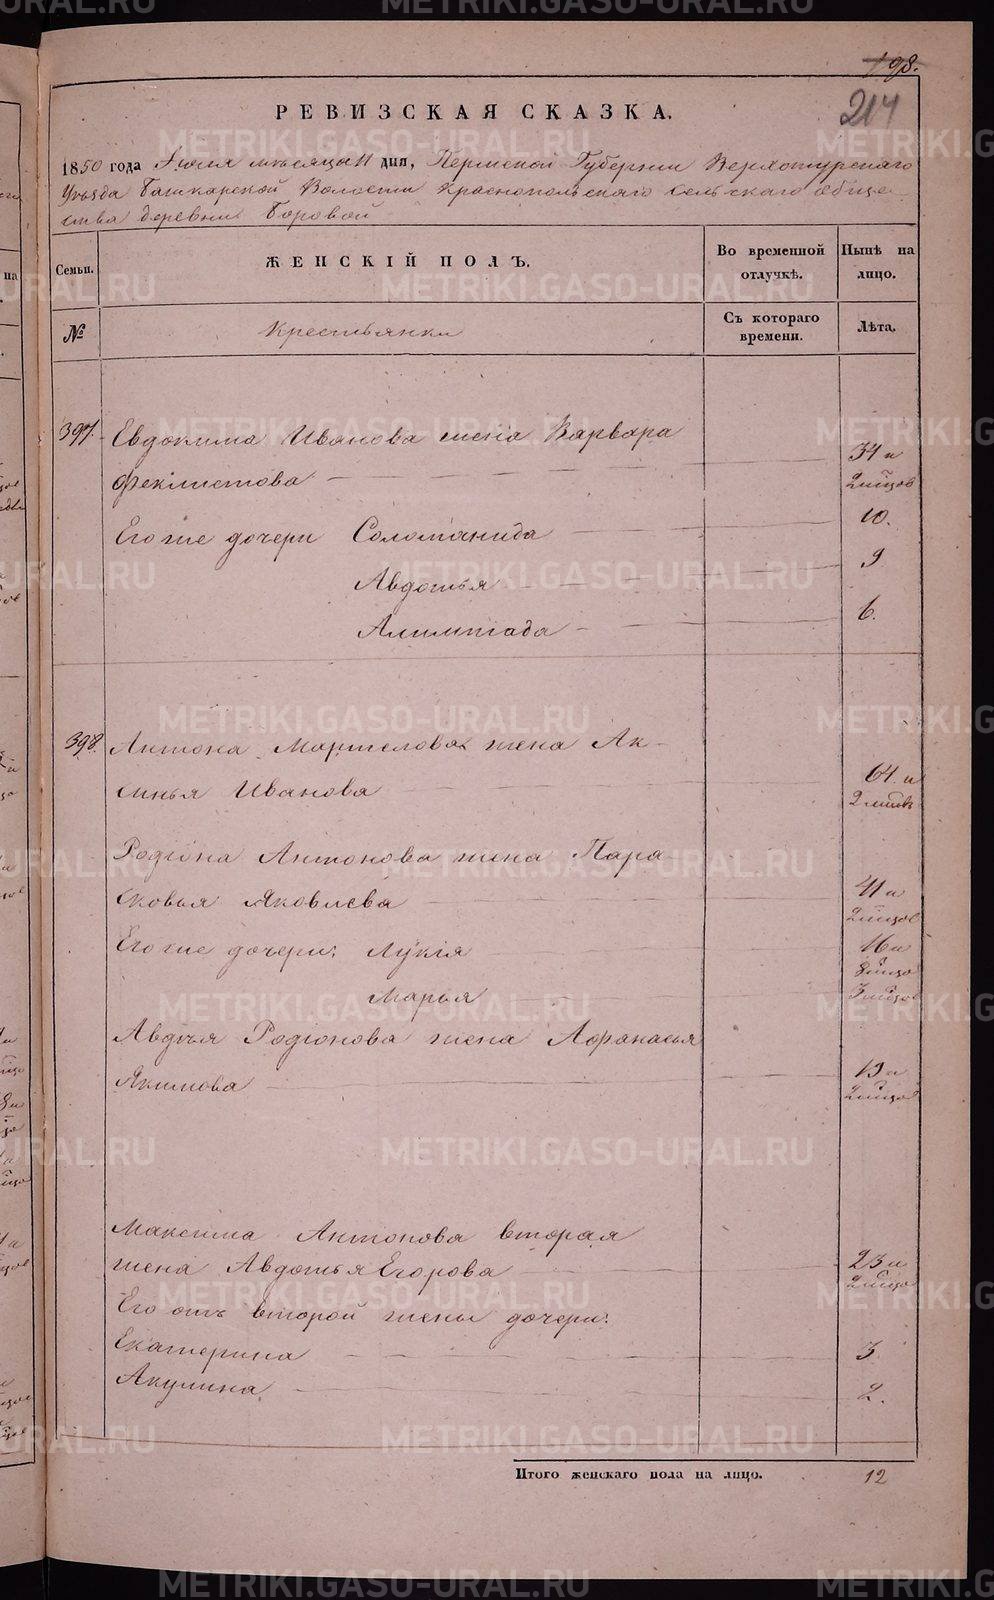 198.
214
РЕВИЗСКАЯ СКАЗКА.
1850 года Июля мѣсяца 11 дня, Пермской Губернии Верхотурскаго
Уѣзда Башкарской Волости Краснопольскаго сельскаго обще
ства деревни Боровой
Семьи.
ЖЕНСКІЙ ПОЛЪ.
Во временной отлучкѣ.
Нынѣ на лицо.
№
Крестьянки
Съ котораго времени.
Лѣта.
397. Евдокима Иванова жена Варвара
Феклистова 34 и 2 мѣсяцов
Его же дочери Соломанида 10.
Авдотья 9
Алимпіада 6.
398. Антона Мартелова жена Ак-
синья Иванова 64. и
Родіона Антонова жена Пара
сковья Яковлева 41 и
Его же дочери: Лукія 16 и
Марья
Авдѣя Родіонова жена Афанасья
Якимова 19 и
Максима Антонова вторая
жена Авдотья Егорова 23 и
Его отъ второй жены дочери:
Екатерина 3.
Акулина 2.
Итого женскаго пола на лицо. 12
METRIKI.GASO-URAL.RU